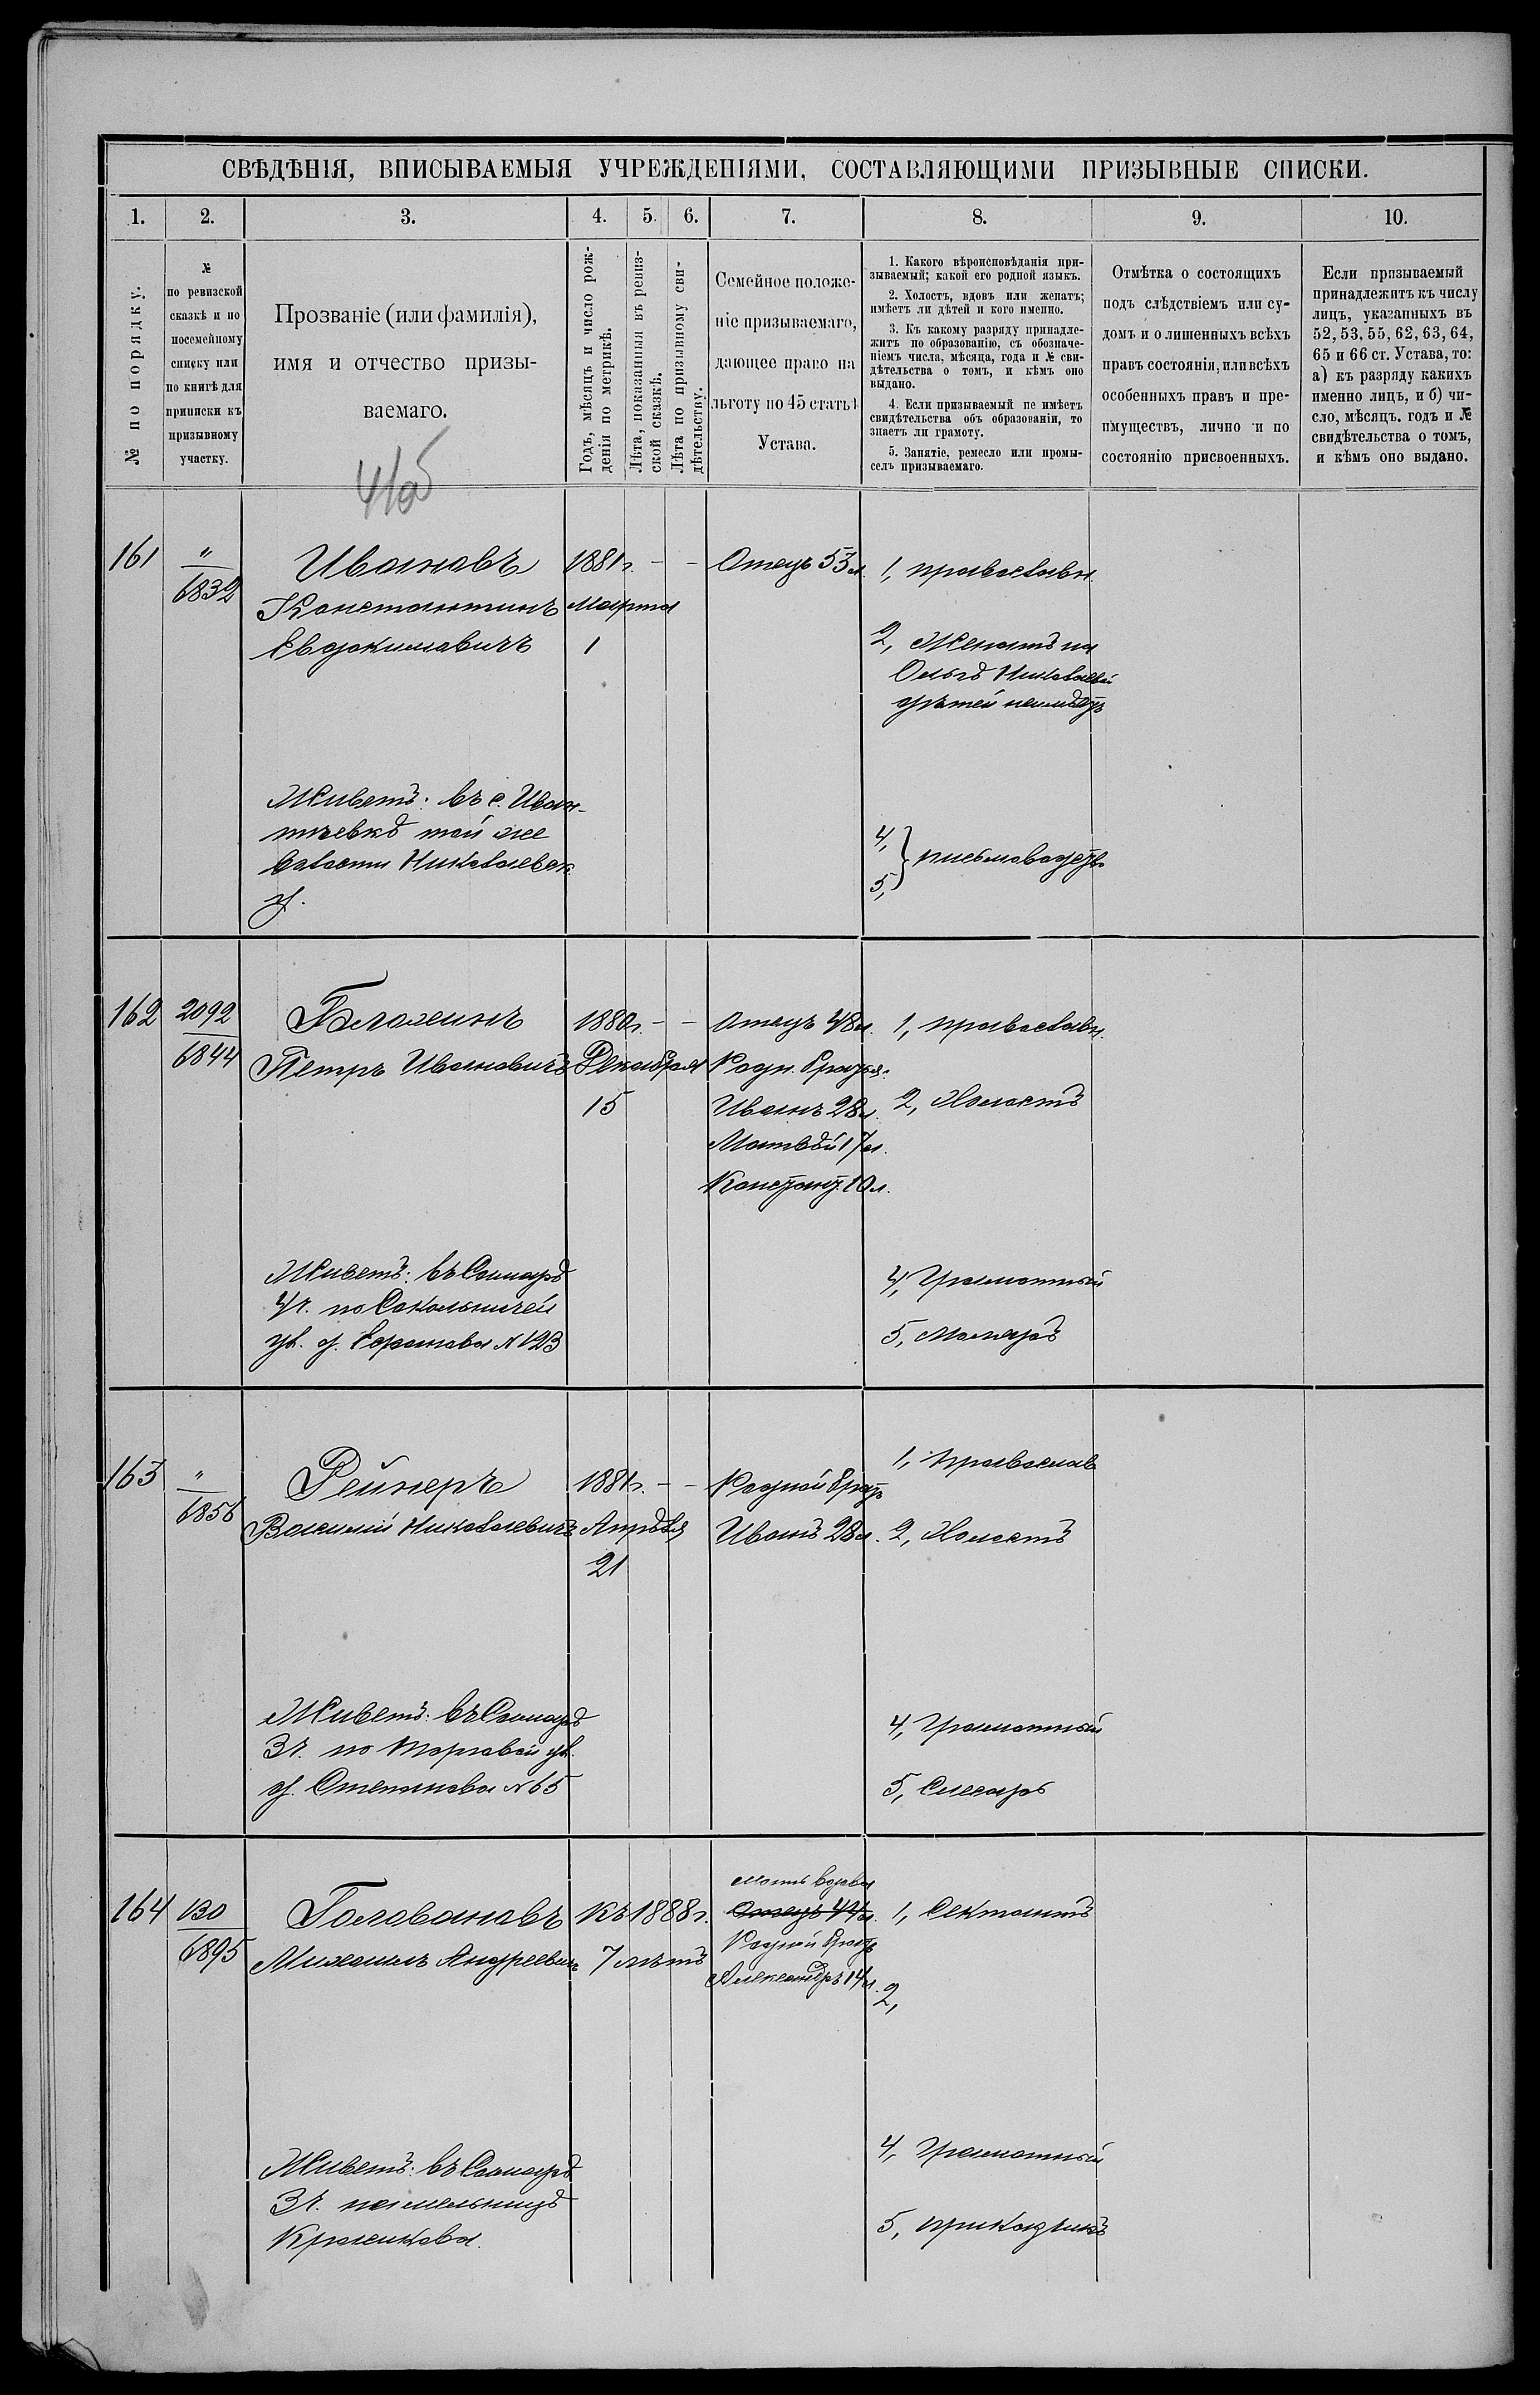 СВѢДѢНІЯ, ВПИСЫВАЕМЫЯ УЧРЕЖДЕНІЯМИ, СОСТАВЛЯЮЩИМИ ПРИЗЫВНЫЕ СПИСКИ.
1. 2. 3. 4. 5. 6. 7. 8. 9. 10.
№ по порядку.
№
по ревизской
сказкѣ и по
посемейному
списку или
по книгѣ для
приписки къ
призывному
участку.
Прозваніе (или фамилія),
имя и отчество призы-
ваемаго.
Годъ, мѣсяцъ и число рож-
денія по метрикѣ.
Лѣта, показанныя въ ревиз-
ской сказкѣ.
Лѣта по призывному сви-
дѣтельству.
Семейное положе-
ніе призываемаго,
дающее право на
льготу по 45 статьѣ
Устава.
1. Какого вѣроисповѣданія при-
зываемый; какой его родной языкъ.
2. Холостъ, вдовъ или женатъ;
имѣетъ ли дѣтей и кого именно.
3. Къ какому разряду принадле-
житъ по образованію, съ обозначе-
ніемъ числа, мѣсяца, года и № сви-
дѣтельства о томъ, и кѣмъ оно
выдано.
4. Если призываемый не имѣетъ
свидѣтельства объ образованіи, то
знаетъ ли грамоту.
5. Занятіе, ремесло или промы-
селъ призываемаго.
Отмѣтка о состоящихъ
подъ слѣдствіемъ или су-
домъ и о лишенныхъ всѣхъ
правъ состоянія, или всѣхъ
особенныхъ правъ и пре-
имуществъ, лично и по
состоянію присвоенныхъ.
Если призываемый
принадлежитъ къ числу
лицъ, указанныхъ въ
52, 53, 55, 62, 63, 64,
65 и 66 ст. Устава, то:
а) къ разряду какихъ
именно лицъ, и б) чи-
сло, мѣсяцъ, годъ и №
свидѣтельства о томъ,
и кѣмъ оно выдано.
161 " Ивановъ 1881г. - - Отецъ 53 л. 1, православн.
6832 Константинъ Марта
Евдокимовичъ 1 2, Женатъ на
Ольгѣ Николаевой
дѣтей неимѣетъ
Живетъ: въ с. Иван-
тѣевкѣ той же
волости Николаевск.
у.
4,
5, письмоводит.
162 2092 Блохинъ 1880г. - - отецъ 48 л. 1, православн.
6844 Петръ Ивановичъ Декабря Родн. братья:
15 Иванъ 28 л. 2, Холостъ
Матвѣй 17 л.
Констант. 10 л.
Живетъ: въ Самарѣ 4, Грамотный
4ч. по Сокольничей
ул. д. № 123 5, Маляръ
163 " Рейнеръ 1881г. - - Родной братъ 1, Православ
6856 Василий Николаевичъ Апрѣля Иванъ 28 л. 2, Холостъ
21
Живетъ: въ Самарѣ 4, Грамотный
3ч. по Торговой ул.
д. Степанова № 65 5, Слесарь
мать вдова
164 130 Головановъ къ 1888г. Отецъ 44 л. 1, Сектантъ
6895 Михаилъ Андреевичъ 7 лѣтъ Родной братъ
Александръ 14 л. 2,
Живетъ: въ Самарѣ 4, Грамотный
3ч. на мельницѣ
5, приказчикъ